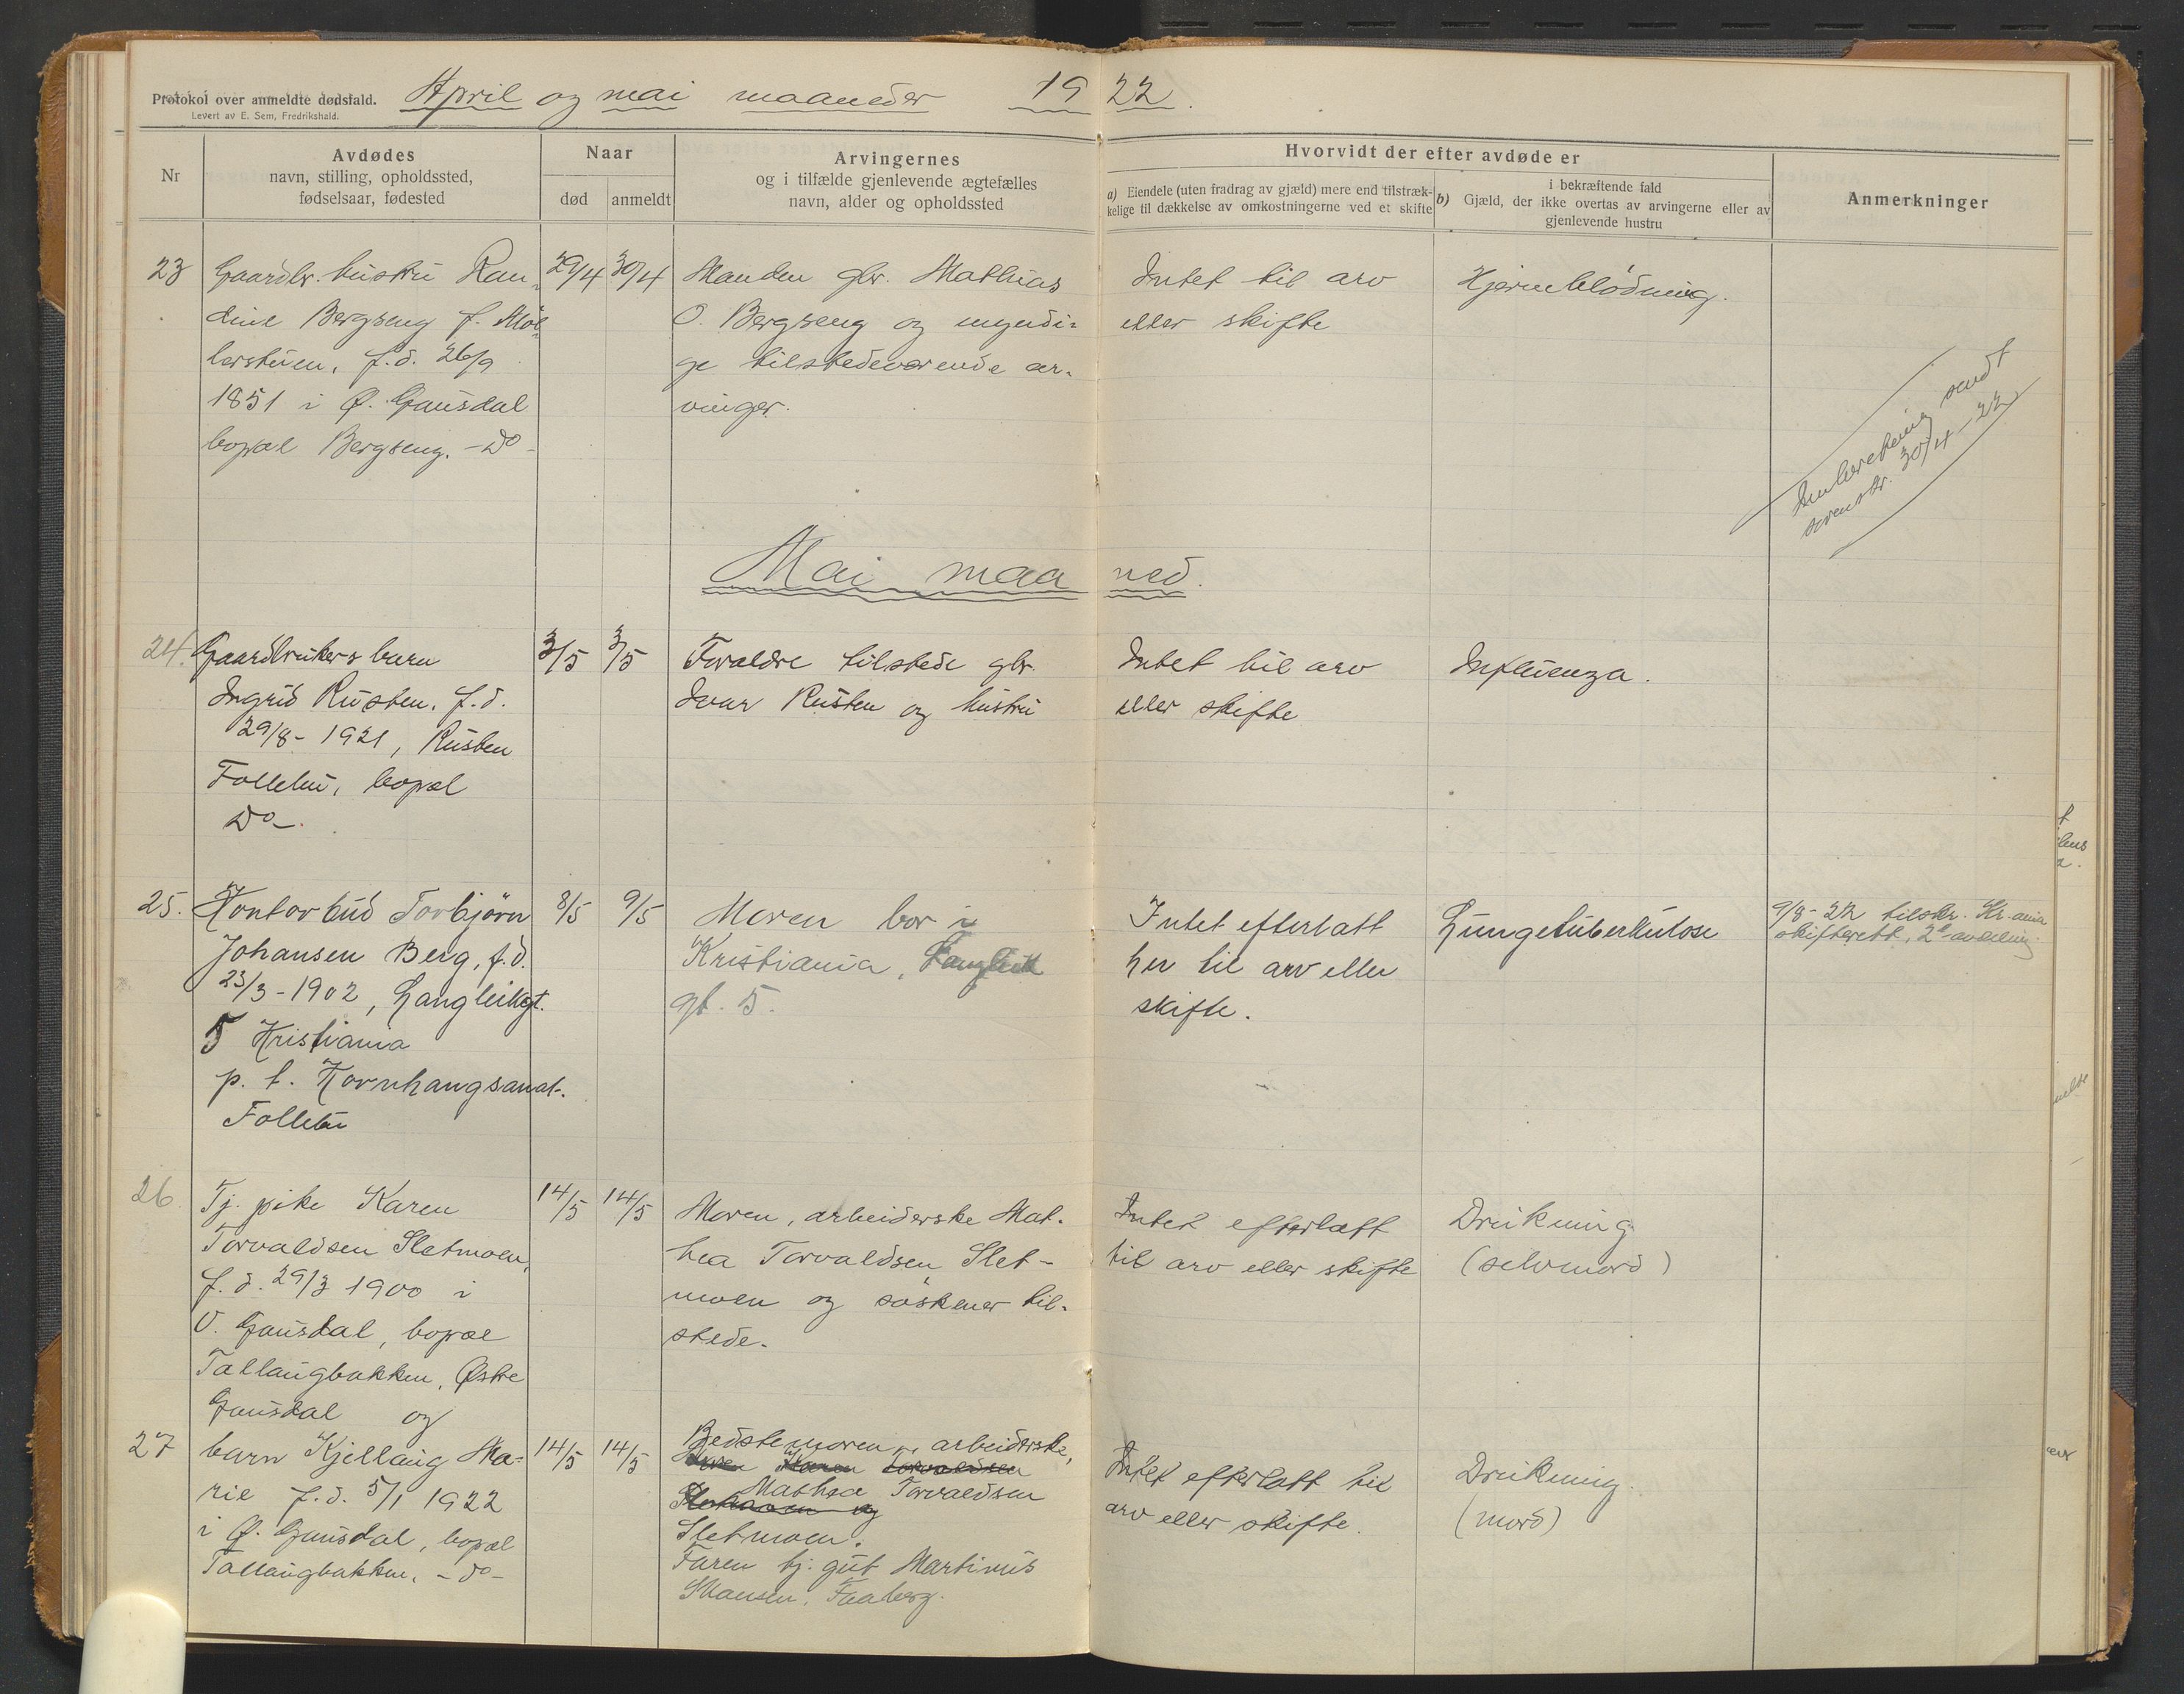 Protokol over anmeldte dødsfald. April og mai maaneder 1922.
Levert av E. Sem, Fredrikshald.
Nr
Avdødes
navn, stilling, opholdssted,
fødselsaar, fødested
Naar
død anmeldt
Arvingernes
og i tilfælde gjenlevende ægtefælles
navn, alder og opholdssted
Hvorvidt der efter avdøde er
a) Eiendele (uten fradrag av gjæld) mere end tilstræk-
kelige til dækkelse av omkostningerne ved et skifte
i bekræftende fald
b) Gjæld, der ikke overtas av arvingerne eller av
gjenlevende hustru
Anmerkninger
23
Gaardbr. hustru Ran-
dine Bergseng f. Möl-
lerstuen, f.d. 26/9
1851 i Ø. Gausdal
bopæl Bergseng. -do-
29/4 30/4
Manden gbr. Mathias
O. Bergseng og myndi-
ge tilstedeværende ar-
vinger.
Intet til arv
eller skifte
Hjerneblödning.
Innberetning sendt
30/4-22
Mai maaned.
24.
Gaardbrukers barn
Ingrid Rusten, f.d.
29/8-1921, Rusten
Follebu, bopæl
do-.
3/5 3/5
Foraldre tilstede gbr.
Ivar Rusten og hustru
Intet til arv
eller skifte
Influenza.
25.
Kontorbud Torbjörn
Johansen Berg, f.d.
23/3-1902, Langleikgt.
5 Kristiania
p.t. Kornhaugsanat.
Follebu
8/5 9/5
Moren bor i
Kristiania, Langleik
gt. 5.
Intet efterlatt
her til arv eller
skifte.
Lungetuberkulose
9/8-22 tilskr. Kr.ania
skifterett, 2den avdeling.
26
Tj. pike Karen
Torvaldsen Sletmoen,
f.d. 29/3 1900 i
V. Gausdal, bopæl
Tallaugbakken, Østre
Gausdal og
14/5 14/5
Moren, arbeiderske Mat-
hea Torvaldsen Slet-
moen og söskener til-
stede.
Intet efterlatt
til arv eller skifte
Drukning
(selvmord)
27
barn Kjellaug Ma-
rie f.d. 5/1 1922
i Ø. Gausdal, bopæl
Tallaugbakken, -do-
14/5 14/5
Bedstemoren, arbeiderske,
Moren Karen Torvaldsen
Mathea Torvaldsen
Sletmoen og
Sletmoen.
Faren tj. gut Martinus
Hansen, Faaberg.
Intet efterlatt til
arv eller skifte.
Drukning.
(mord)